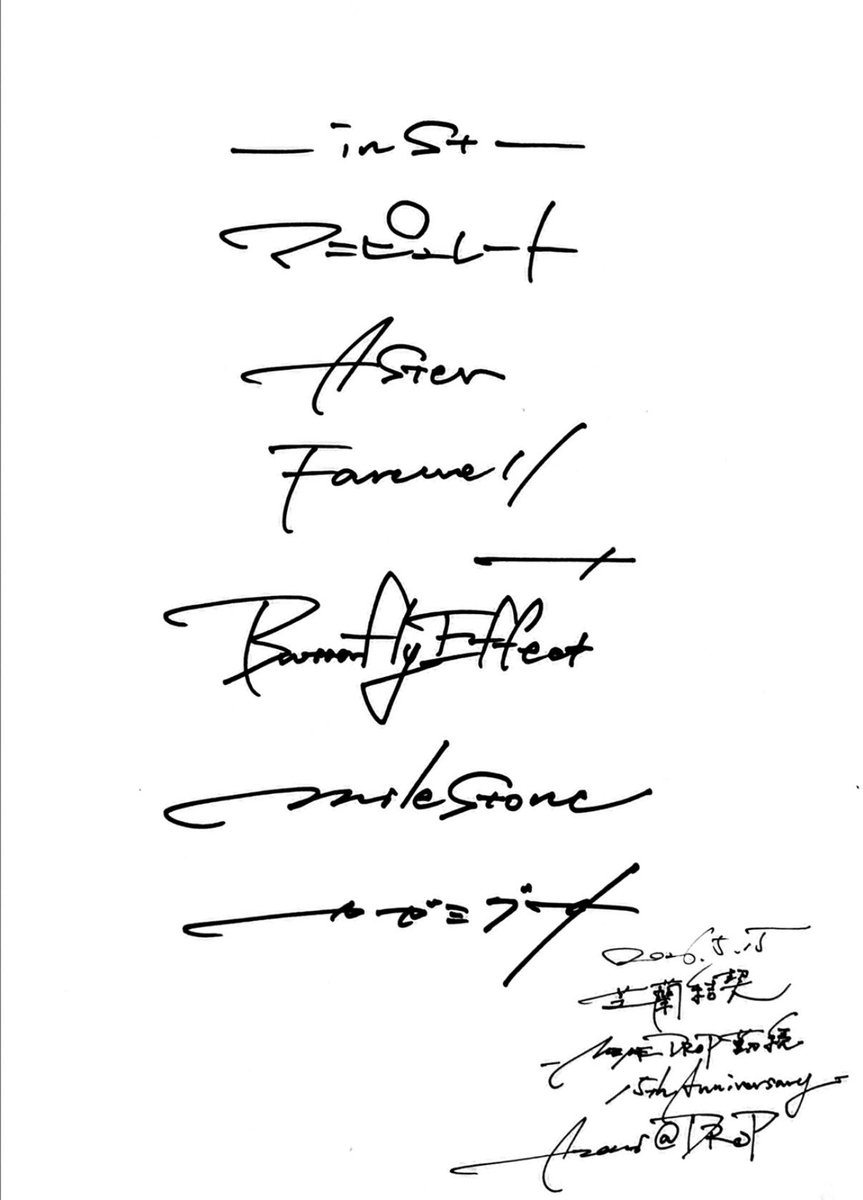 — in St —
マニピュレート
Aster
Farewell
Butterfly Effect
milestone
2026.5.15
芝蘭結契
DRoP勤続
15th Anniversary
@DRoP